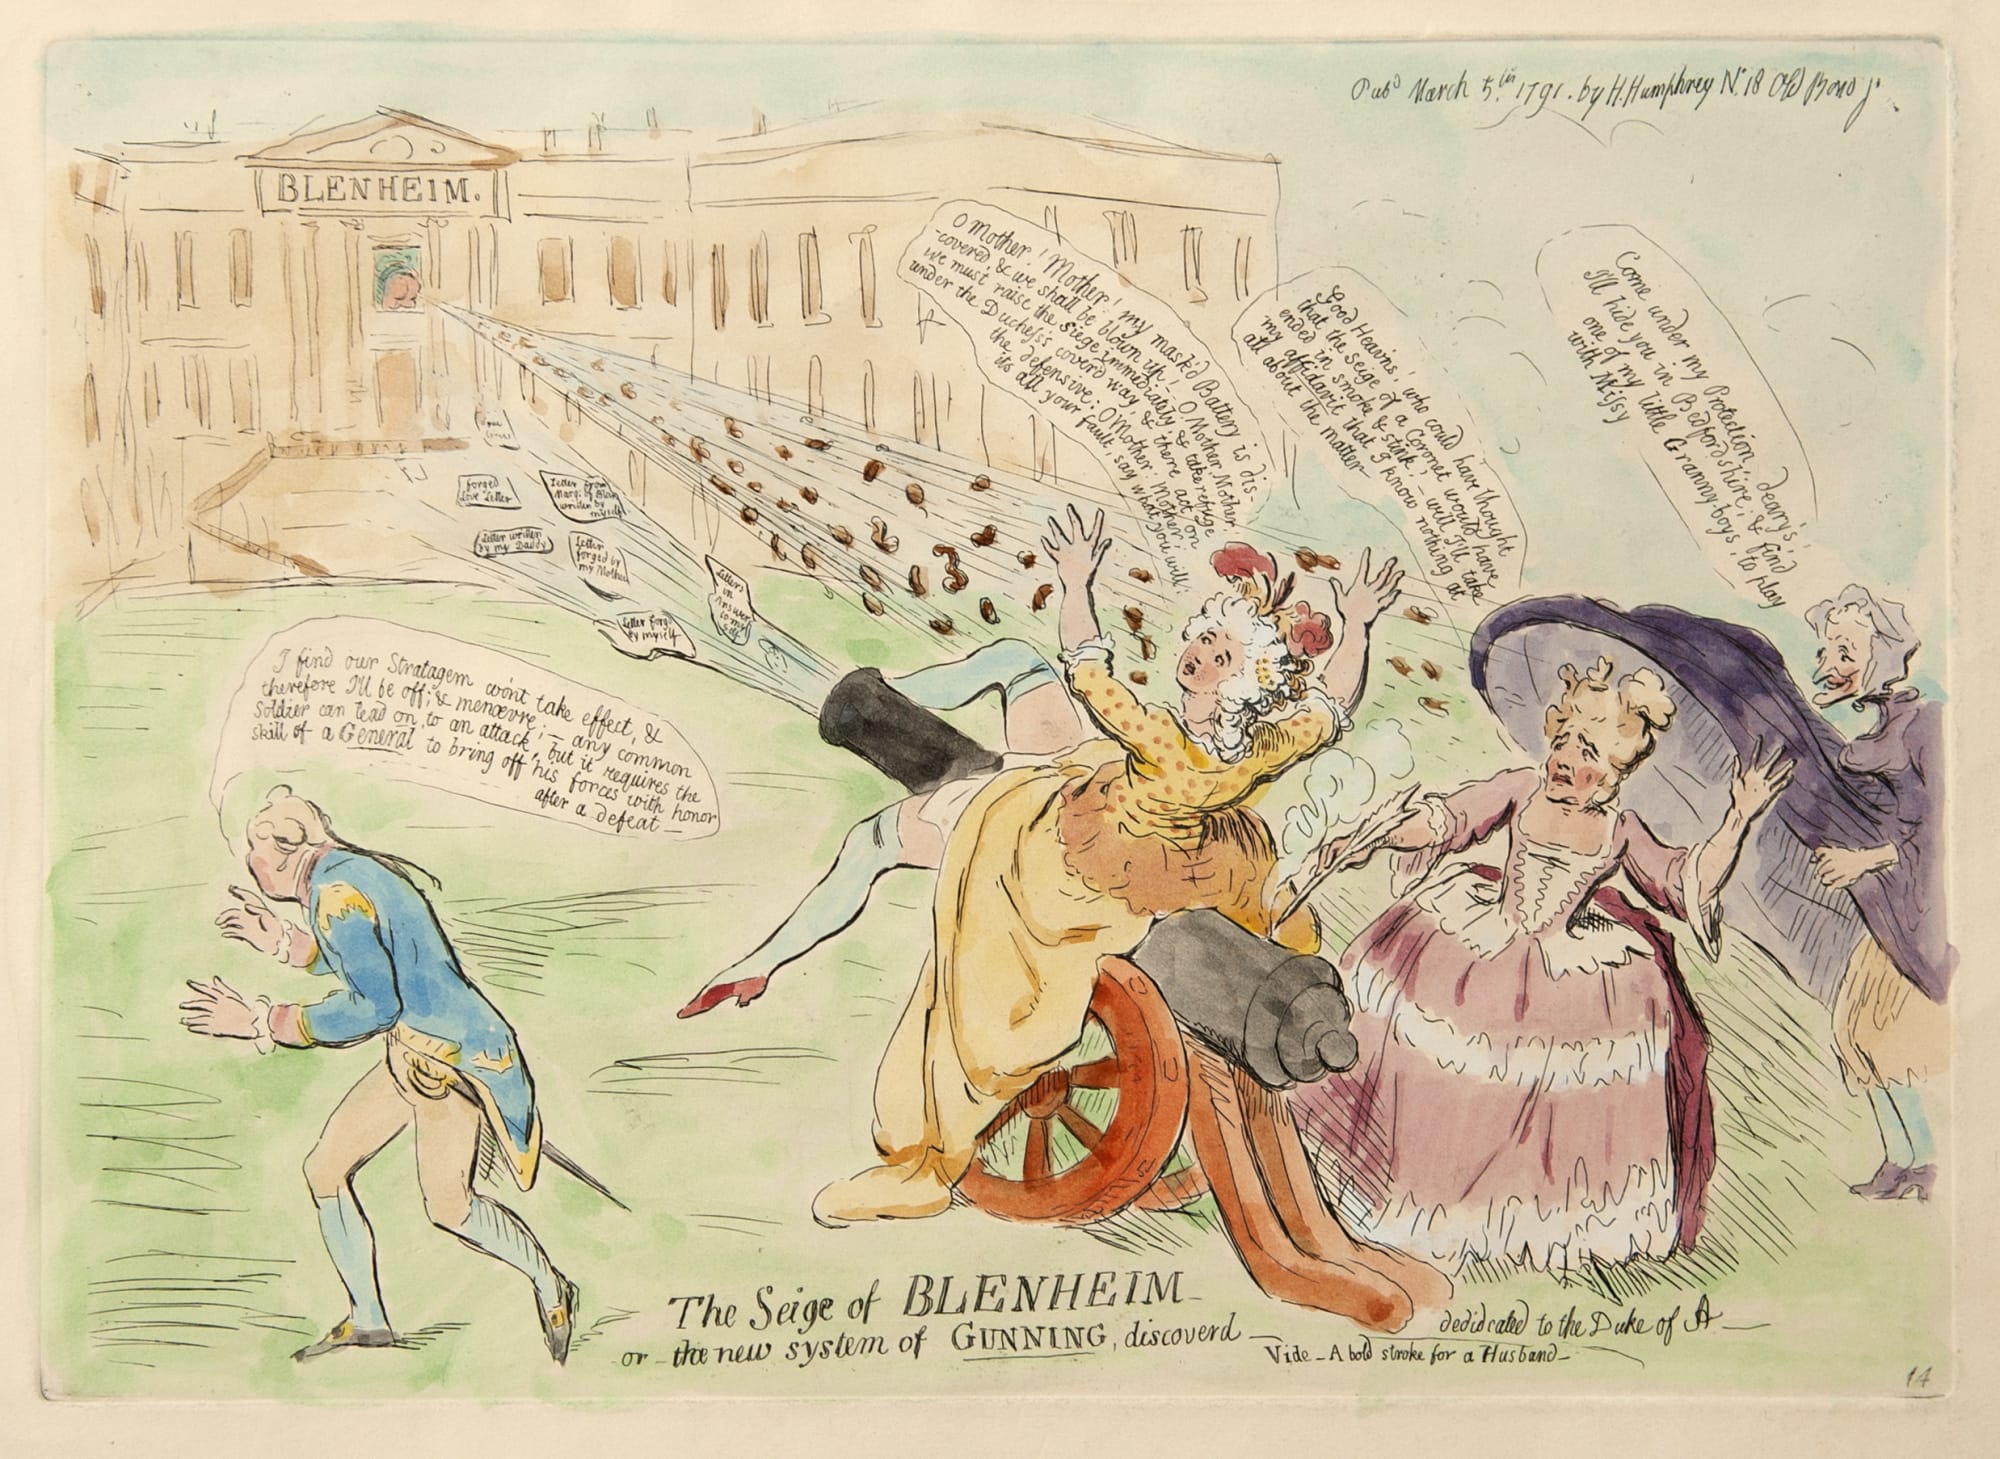 Pubd March 5th 1791. by H. Humphrey No. 18 Old Bond
BLENHEIM.
O Mother! Mother! my mask'd Battery is dis-
-covered & we shall be blown up! - O Mother, Mother
we must raise the siege immediately & take refuge
under the Duchess's coverd way, & there act on
the defensive: O Mother! Mother!
its all your fault, say what you will.
Good Heavns! who could have thought
that the seige of a Coronet would have
ended in smoke & stink! - well I'll take
my affidavit that I know nothing at
all about the matter
Come under my Protection, deary's!
I'll hide you in Bedfordshire; & find
one of my little Granny-boys, to play
with Missy
forged
Love Letter
Letter from
Marq: of Blan
written by
myself
Letter written
by my Daddy
Letter
forged by
my Mother
Letters
in
Answer
to my
self
Letter forgd
by myself
I find our Stratagem won't take effect, &
therefore I'll be off, & menœvre; - any common
Soldier can lead on, to an attack, but it requires the
skill of a General to bring off his forces with honor
after a defeat -
The Seige of BLENHEIM -
or - the new system of GUNNING, discoverd -
dedidcated to the Duke of A -
Vide - A bold stroke for a Husband -
14